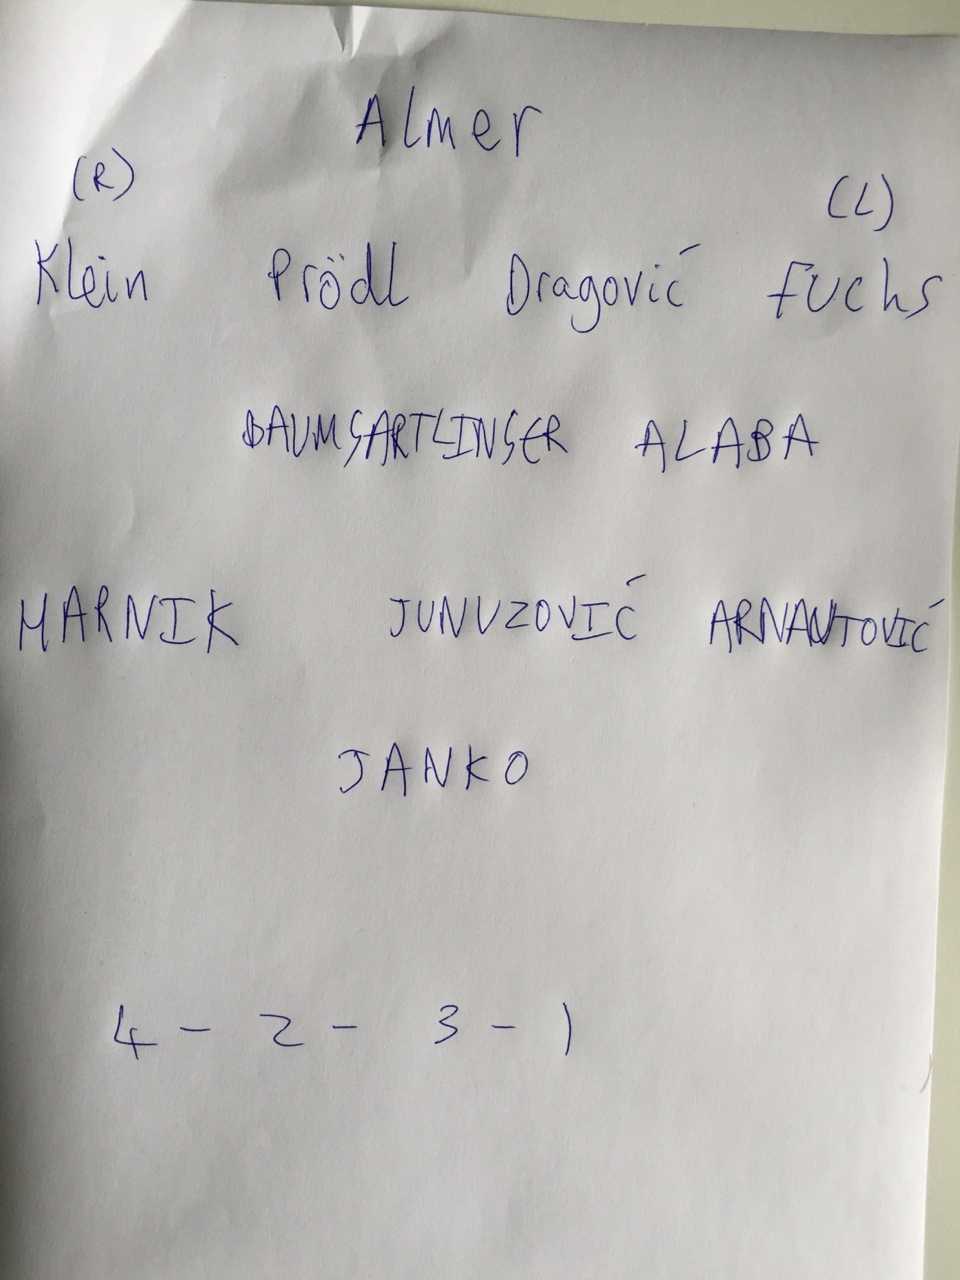 Almer
(R) (L)
Klein Prödl Dragović Fuchs
BAUMGARTLINGER ALABA
HARNIK JUNUZOVIĆ ARNAUTOVIĆ
JANKO
4 - 2 - 3 - 1